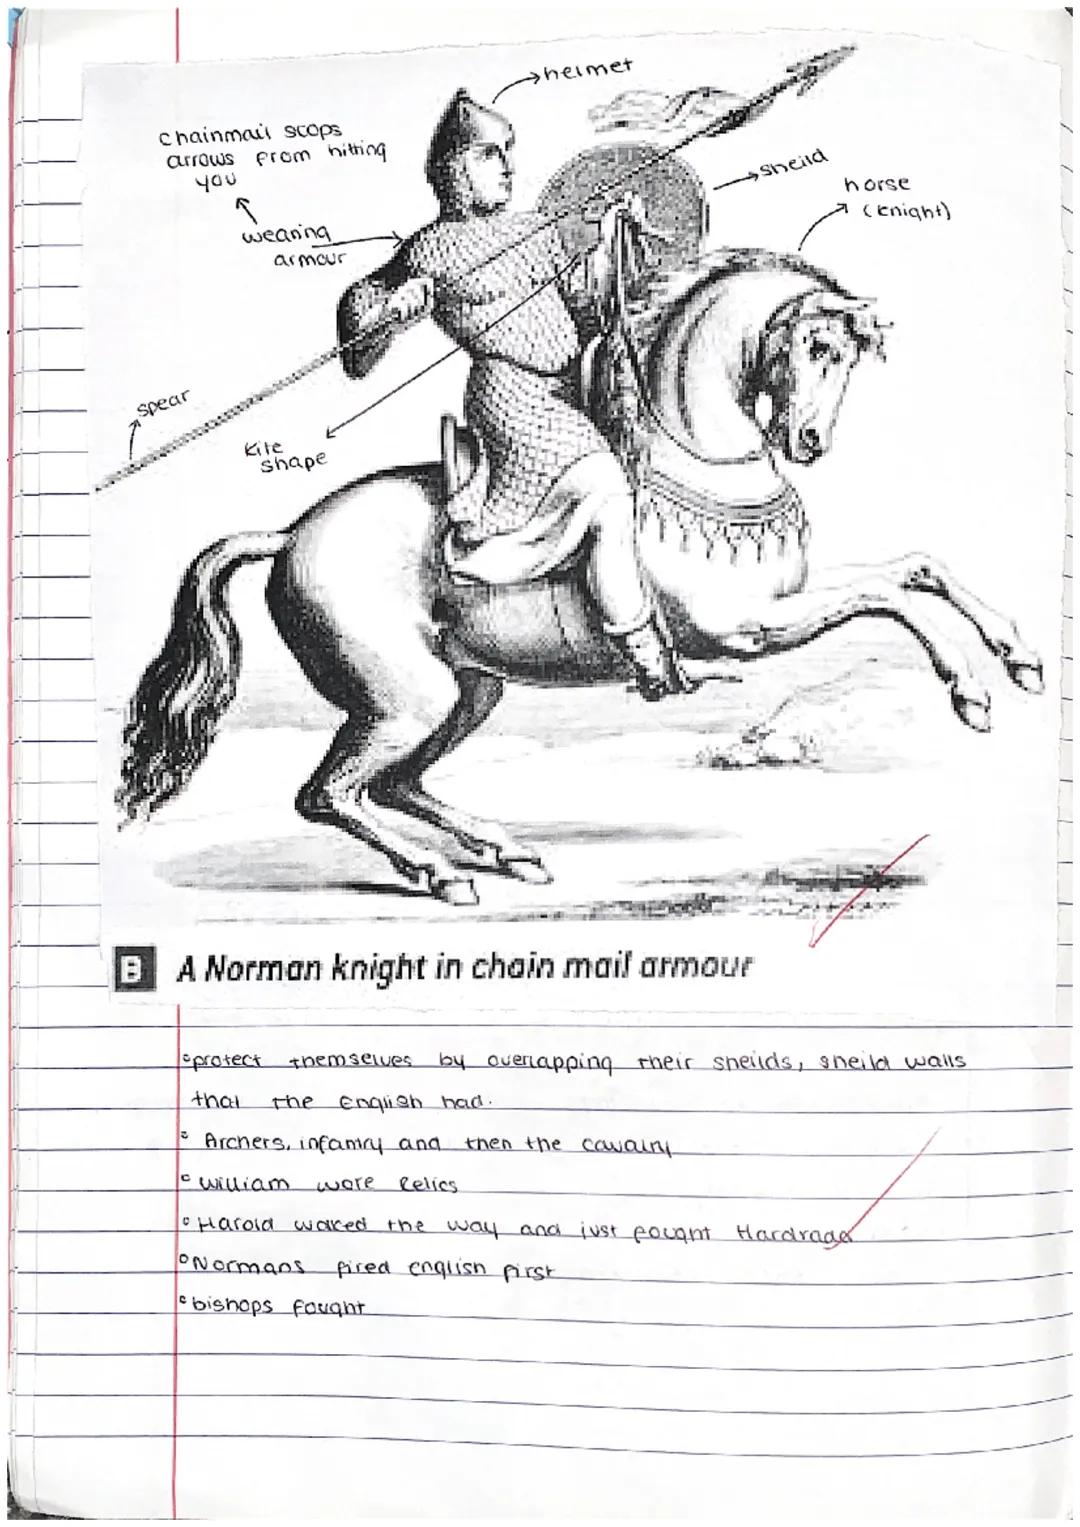 helmet
chainmail stops
arrows from hitting
you
sheild
horse
(knight)
wearing
armour
spear
kite
shape
B A Norman knight in chain mail armour
protect themselves by overlapping their sheilds, sheild walls
that the English had.
Archers, infantry and then the cavalry
William wore Relics
Harold walked the way and just fought Hardrada
Normans fired english first
bishops fought